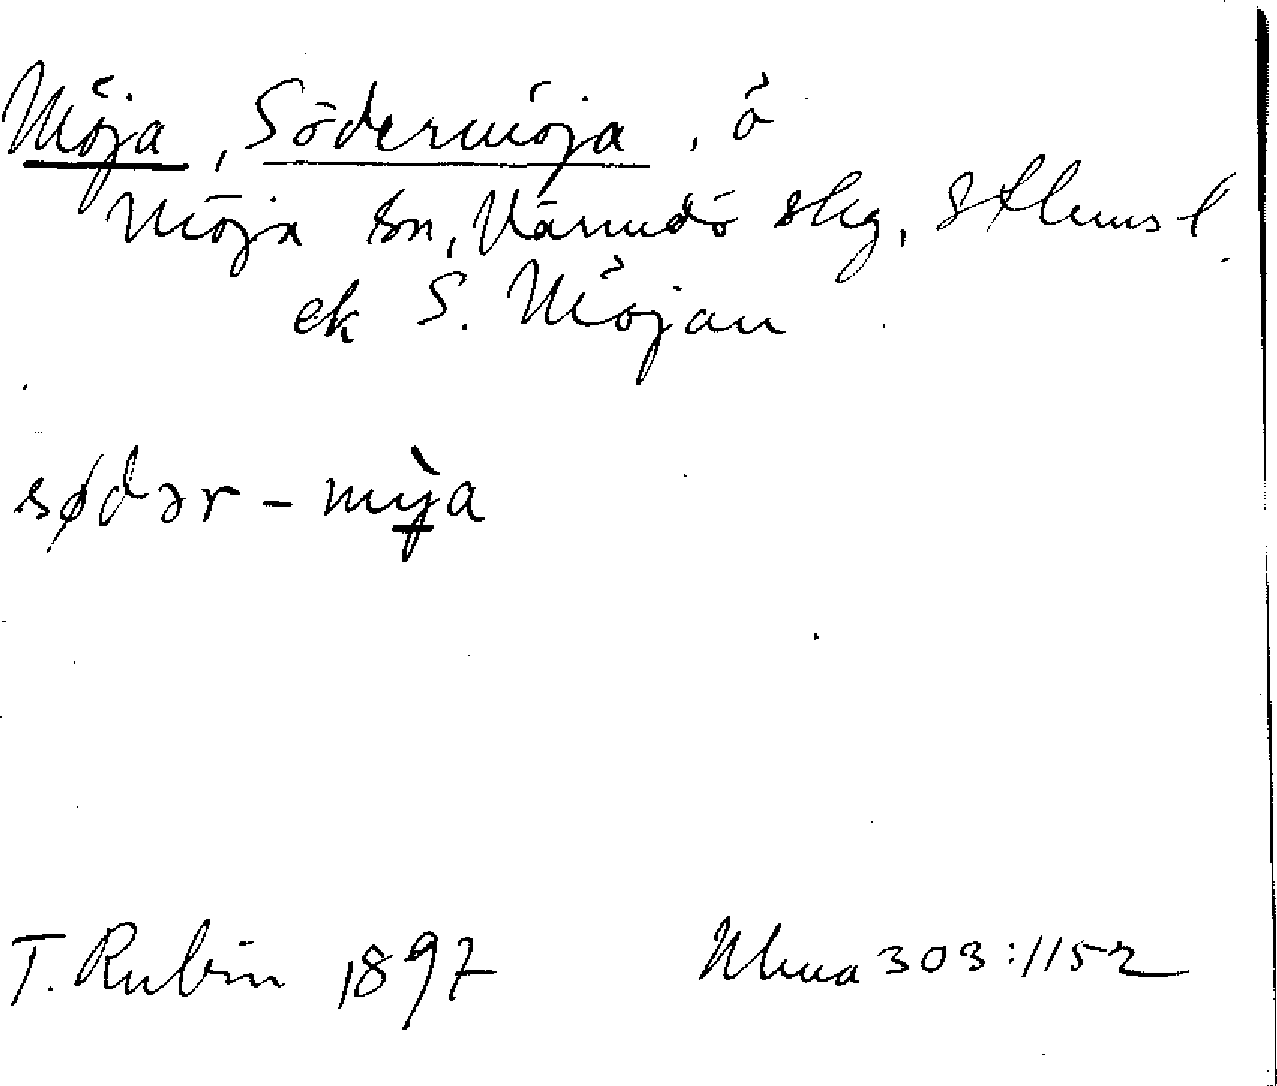 Möja, Södermöja, ö
Möja sn, Värmdö skg, Sthms l.
ek S. Möjan
sødər - mỳja
T. Rubin 1897
Uhua 303:1152